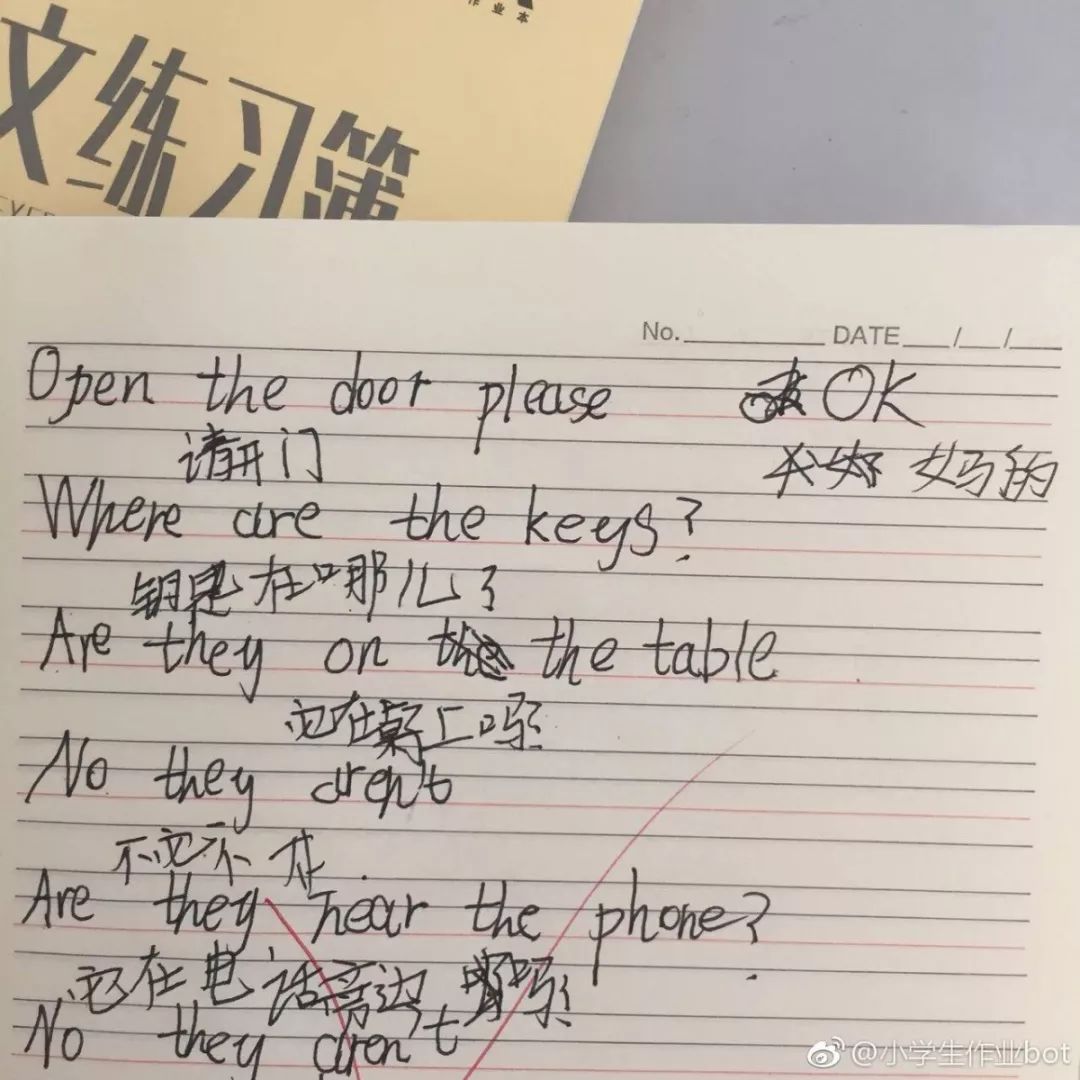 作业本
文练习簿
No. DATE / /
Open the door please OK
请开门 妈的
Where are the keys?
钥匙在哪儿了
Are they on the the table
它在桌子上吗
No they aren't
不它不在.
Are they near the phone?
它在电话旁边吗
No they aren't
@小学生作业bot